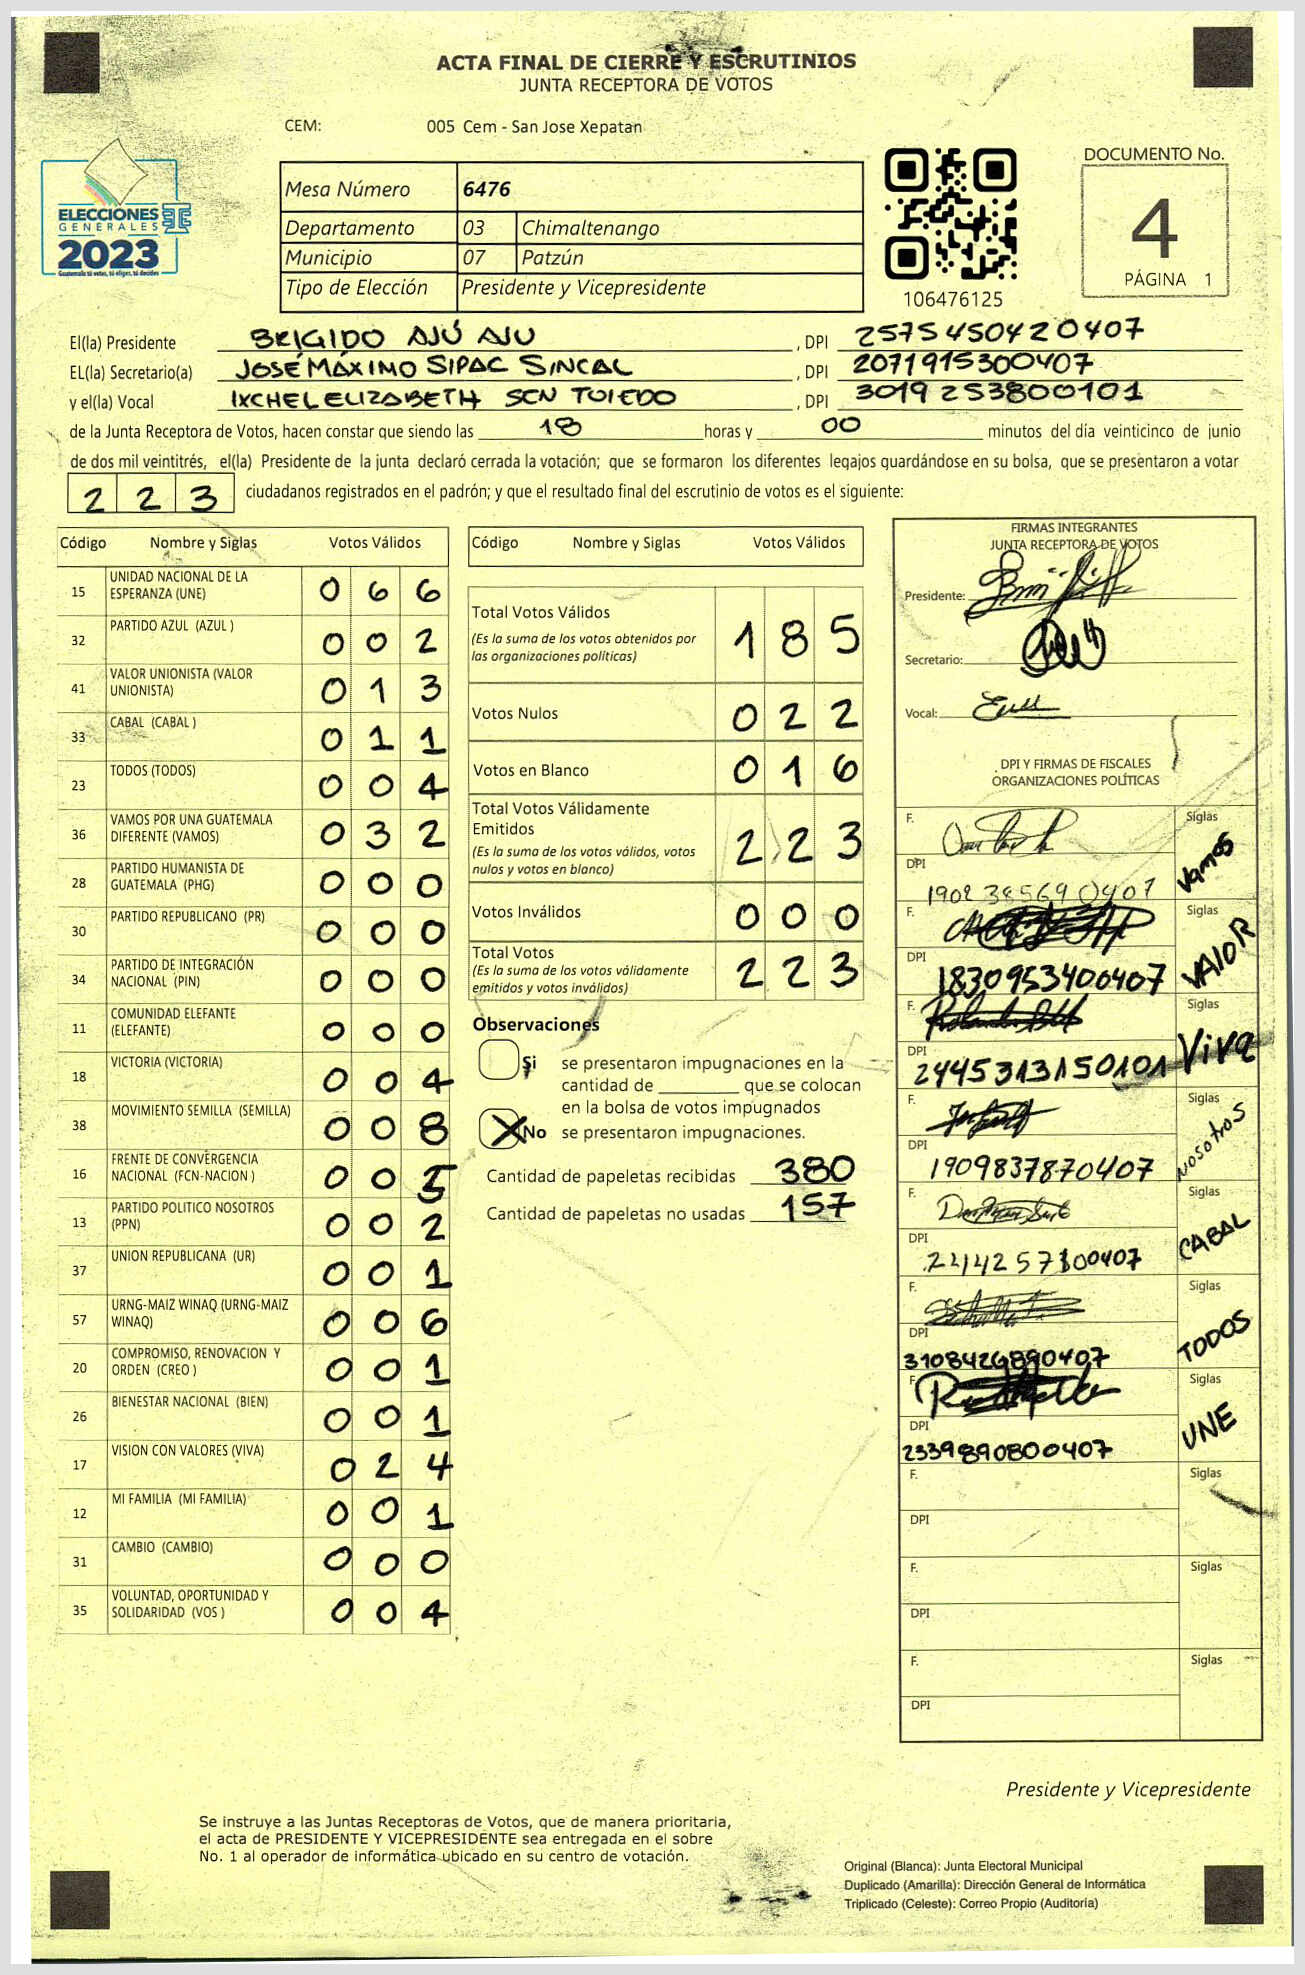 ACTA FINAL DE CIERRE Y ESCRUTINIOS
JUNTA RECEPTORA DE VOTOS
CEM: 005 Cem - San Jose Xepatan
ELECCIONES
GENERALES
2023
Guatemala tú votas, tú eliges, tú decides
Mesa Número 6476
Departamento 03 Chimaltenango
Municipio 07 Patzún
Tipo de Elección Presidente y Vicepresidente
106476125
DOCUMENTO No.
4
PÁGINA 1
El(la) Presidente BRÍGIDO AJÚ AJU , DPI 2575450420407
EL(la) Secretario(a) JOSÉ MÁXIMO SIPAC SINCAL , DPI 2071915300407
y el(la) Vocal IXCHEL ELIZABETH SCN TOLEDO , DPI 3019253800101
de la Junta Receptora de Votos, hacen constar que siendo las 18 horas y 00 minutos del día veinticinco de junio
de dos mil veintitrés, el(la) Presidente de la junta declaró cerrada la votación; que se formaron los diferentes legajos guardándose en su bolsa, que se presentaron a votar
2 2 3 ciudadanos registrados en el padrón; y que el resultado final del escrutinio de votos es el siguiente:
Código Nombre y Siglas Votos Válidos
15 UNIDAD NACIONAL DE LA ESPERANZA (UNE) 0 6 6
32 PARTIDO AZUL (AZUL ) 0 0 2
41 VALOR UNIONISTA (VALOR UNIONISTA) 0 1 3
33 CABAL (CABAL ) 0 1 1
23 TODOS (TODOS) 0 0 4
36 VAMOS POR UNA GUATEMALA DIFERENTE (VAMOS) 0 3 2
28 PARTIDO HUMANISTA DE GUATEMALA (PHG) 0 0 0
30 PARTIDO REPUBLICANO (PR) 0 0 0
34 PARTIDO DE INTEGRACIÓN NACIONAL (PIN) 0 0 0
11 COMUNIDAD ELEFANTE (ELEFANTE) 0 0 0
18 VICTORIA (VICTORIA) 0 0 4
38 MOVIMIENTO SEMILLA (SEMILLA) 0 0 8
16 FRENTE DE CONVERGENCIA NACIONAL (FCN-NACION ) 0 0 5
13 PARTIDO POLITICO NOSOTROS (PPN) 0 0 2
37 UNION REPUBLICANA (UR) 0 0 1
57 URNG-MAIZ WINAQ (URNG-MAIZ WINAQ) 0 0 6
20 COMPROMISO, RENOVACION Y ORDEN (CREO ) 0 0 1
26 BIENESTAR NACIONAL (BIEN) 0 0 1
17 VISION CON VALORES (VIVA) 0 2 4
12 MI FAMILIA (MI FAMILIA) 0 0 1
31 CAMBIO (CAMBIO) 0 0 0
35 VOLUNTAD, OPORTUNIDAD Y SOLIDARIDAD (VOS ) 0 0 4
Código Nombre y Siglas Votos Válidos
Total Votos Válidos 1 8 5
(Es la suma de los votos obtenidos por
las organizaciones politicas)
Votos Nulos 0 2 2
Votos en Blanco 0 1 6
Total Votos Válidamente
Emitidos 2 2 3
(Es la suma de los votos válidos, votos
nulos y votos en blanco)
Votos Inválidos 0 0 0
Total Votos 2 2 3
(Es la suma de los votos válidamente
emitidos y votos inválidos)
Observaciones
Si se presentaron impugnaciones en la
cantidad de que se colocan
en la bolsa de votos impugnados
X No se presentaron impugnaciones.
Cantidad de papeletas recibidas 380
Cantidad de papeletas no usadas 157
FIRMAS INTEGRANTES
JUNTA RECEPTORA DE VOTOS
Presidente:
Secretario:
Vocal:
DPI Y FIRMAS DE FISCALES
ORGANIZACIONES POLÍTICAS
F. Siglas Vamos
DPI 1902385690407
F. Siglas VALOR
DPI 1830953400407
F. Siglas Viva
DPI 2445313150101
F. Siglas NOSOTROS
DPI 1909837870407
F. Siglas CABAL
DPI
F. Siglas TODOS
DPI 3108426890407
F. Siglas UNE
DPI 2339890800407
F. Siglas
DPI
F. Siglas
DPI
F. Siglas
DPI
Presidente y Vicepresidente
Se instruye a las Juntas Receptoras de Votos, que de manera prioritaria,
el acta de PRESIDENTE Y VICEPRESIDENTE sea entregada en el sobre
No. 1 al operador de informática ubicado en su centro de votación.
Original (Blanca): Junta Electoral Municipal
Duplicado (Amarilla): Dirección General de Informática
Triplicado (Celeste): Correo Propio (Auditoría)